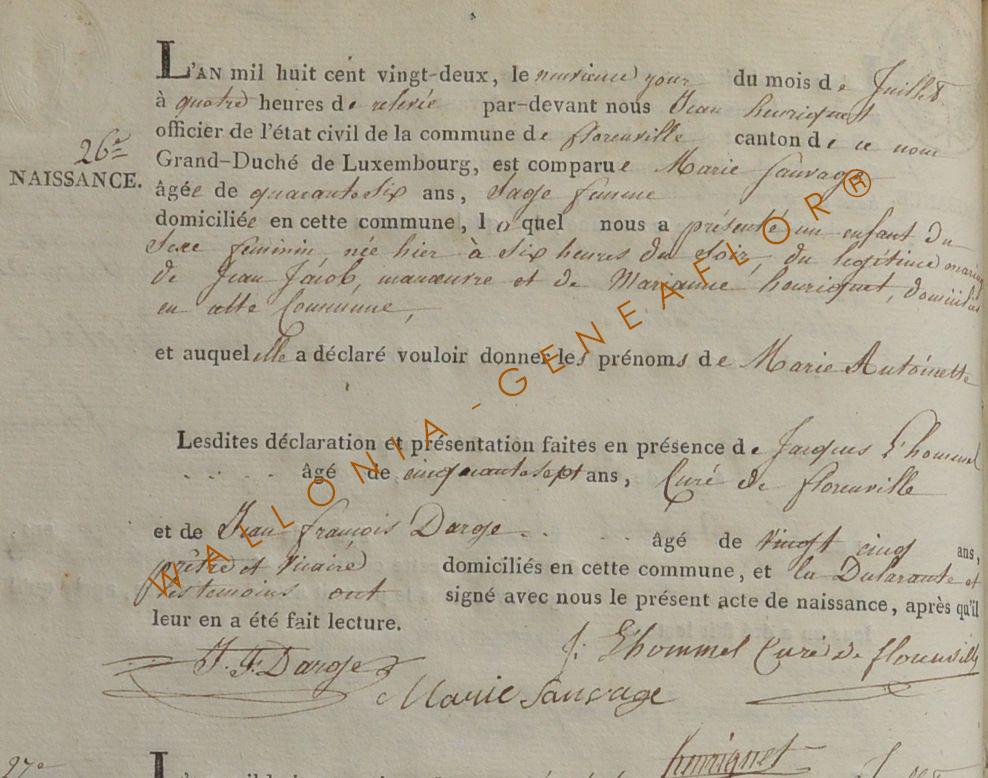 L'AN mil huit cent vingt-deux, le neuvieme jour du mois de Juillet
à quatre heures de relevée par-devant nous Jean henriquet
officier de l'état civil de la commune de florenville canton de ce nom
26e
NAISSANCE.
Grand-Duché de Luxembourg, est comparue Marie Sauvage
âgée de quarante Six ans, Sage femme
domiciliée en cette commune, laquel nous a présenté un enfant du
Sexe féminin, née hier à Six heures du Soir, du légitime mariage
de Jean Jacob, manœuvre et de Marianne henriquet, domiciliés
en cette Commune,
et auquel elle a déclaré vouloir donner les prénoms de Marie Antoinette
Lesdites déclaration et présentation faites en présence de Jacques L'hommel
âgé de cinquante sept ans, Curé de florenville
et de Jean françois Darge âgé de vingt cinq ans,
prêtre et vicaire domiciliés en cette commune, et la Déclarante et
les temoins ont signé avec nous le présent acte de naissance, après qu'il
leur en a été fait lecture.
J. F. Darge
J. L'hommel Curé de florenville
Marie Sauvage
henriquet
27e
WALLONIA - GENEAFLOR®